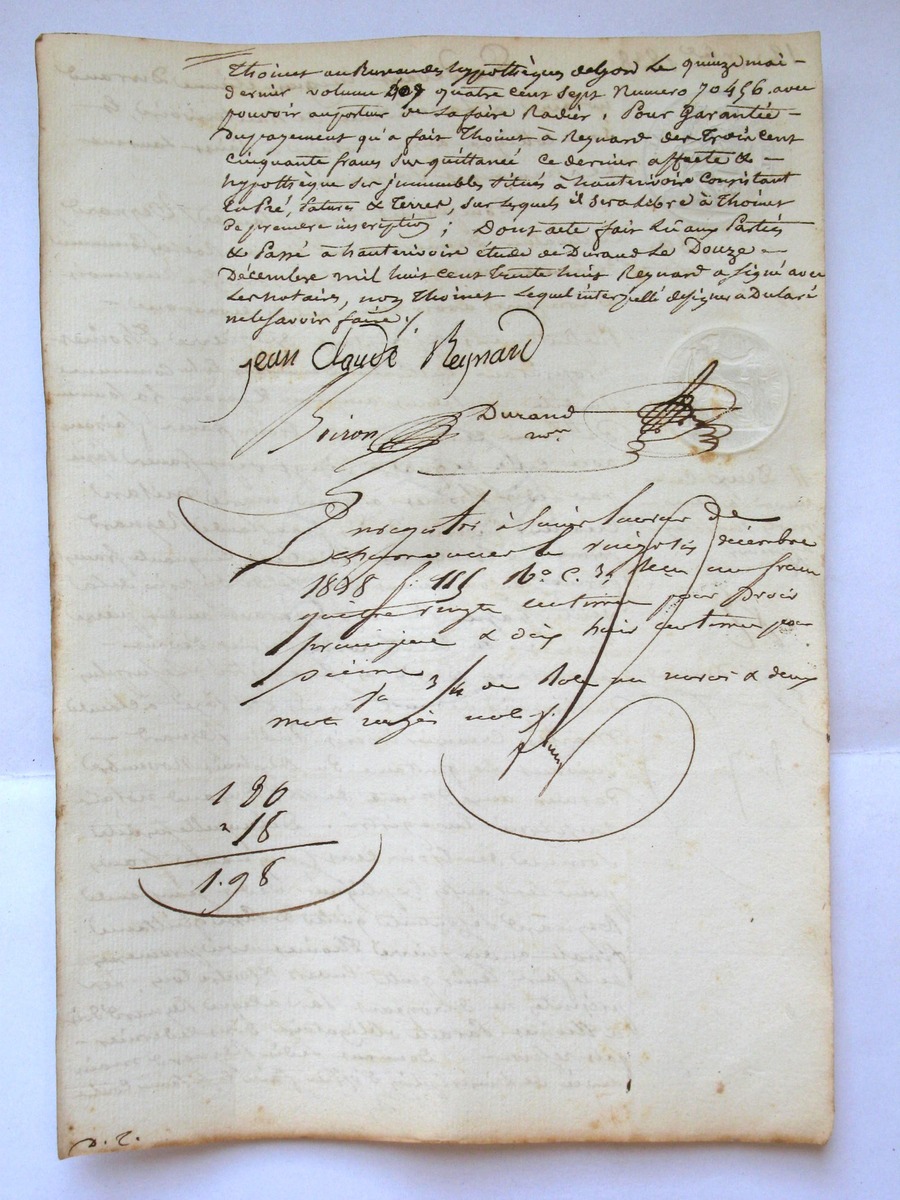 Thoinet au Bureau des hypothèques de Lyon le quinze mai
dernier volume 407 quatre cent sept Numero 70456 avec
pouvoir au porteur de la faire Radier, Pour Garantie
du payement qu'a fait Thoinet à Reynard des Trois cent
cinquante francs sus quittancé ce dernier affecte &
hypothèque ses immeubles situés à hauterivoire Consistant
En Pré, Patures & Terres, sur lesquels il sera libre à Thoinet
de premiere inscription ; Dont acte fait Lû aux Parties
& Passé à hauterivoire étude de Durand Le Douze
Décembre mil huit cent trente huit Reynard a signé avec
les notaires, non Thoinet lequel interpellé de signer a Déclaré
ne le savoir faire ./.
jean Claude Reynard
Boiron Durand
nre
Enregistré à Saint Laurent de
Chamousset le vingt décembre
1838 f. 115 Ro C. 3 Reçu un franc
quatre vingts centimes pour droit
principal & dix huit centimes pour
décime
3/4 de Role un renvoi & deux
mots rayés nuls ./.
1 80
" 18
1.98
D. T.